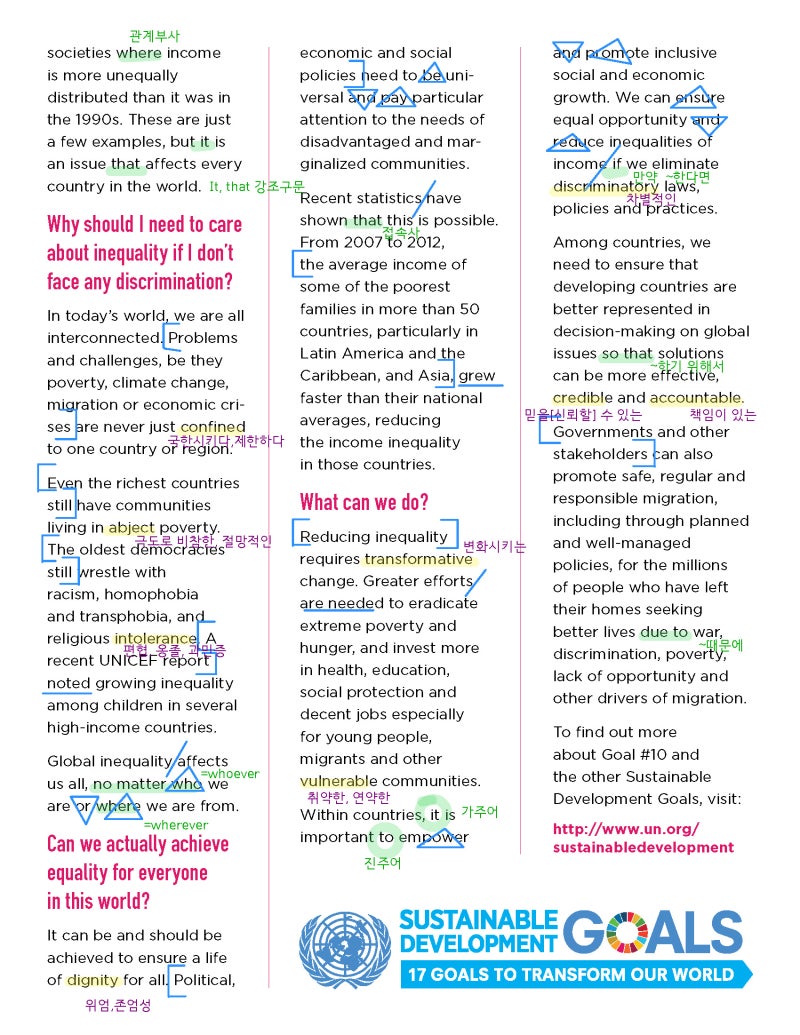 관계부사
societies where income
is more unequally
distributed than it was in
the 1990s. These are just
a few examples, but it is
an issue that affects every
country in the world. It, that 강조구문
Why should I need to care
about inequality if I don't
face any discrimination?
In today's world, we are all
interconnected. Problems
and challenges, be they
poverty, climate change,
migration or economic cri-
ses are never just confined
국한시키다,제한하다
to one country or region.
Even the richest countries
still have communities
living in abject poverty.
극도로 비참한, 절망적인
The oldest democracies
still wrestle with
racism, homophobia
and transphobia, and
religious intolerance. A
편협, 옹졸, 과민증
recent UNICEF report
noted growing inequality
among children in several
high-income countries.
Global inequality affects
us all, no matter who we
=whoever
are or where we are from.
=wherever
Can we actually achieve
equality for everyone
in this world?
It can be and should be
achieved to ensure a life
of dignity for all. Political,
위엄,존엄성
economic and social
policies need to be uni-
versal and pay particular
attention to the needs of
disadvantaged and mar-
ginalized communities.
Recent statistics have
shown that this is possible.
접속사
From 2007 to 2012,
the average income of
some of the poorest
families in more than 50
countries, particularly in
Latin America and the
Caribbean, and Asia, grew
faster than their national
averages, reducing
the income inequality
in those countries.
What can we do?
Reducing inequality
변화시키는
requires transformative
change. Greater efforts
are needed to eradicate
extreme poverty and
hunger, and invest more
in health, education,
social protection and
decent jobs especially
for young people,
migrants and other
vulnerable communities.
취약한, 연약한
Within countries, it is
가주어
important to empower
진주어
and promote inclusive
social and economic
growth. We can ensure
equal opportunity and
reduce inequalities of
income if we eliminate
만약 ~한다면
discriminatory laws,
차별적인
policies and practices.
Among countries, we
need to ensure that
developing countries are
better represented in
decision-making on global
issues so that solutions
~하기 위해서
can be more effective,
credible and accountable.
믿을[신뢰할] 수 있는
책임이 있는
Governments and other
stakeholders can also
promote safe, regular and
responsible migration,
including through planned
and well-managed
policies, for the millions
of people who have left
their homes seeking
better lives due to war,
~때문에
discrimination, poverty,
lack of opportunity and
other drivers of migration.
To find out more
about Goal #10 and
the other Sustainable
Development Goals, visit:
http://www.un.org/
sustainabledevelopment
SUSTAINABLE
DEVELOPMENT GOALS
17 GOALS TO TRANSFORM OUR WORLD